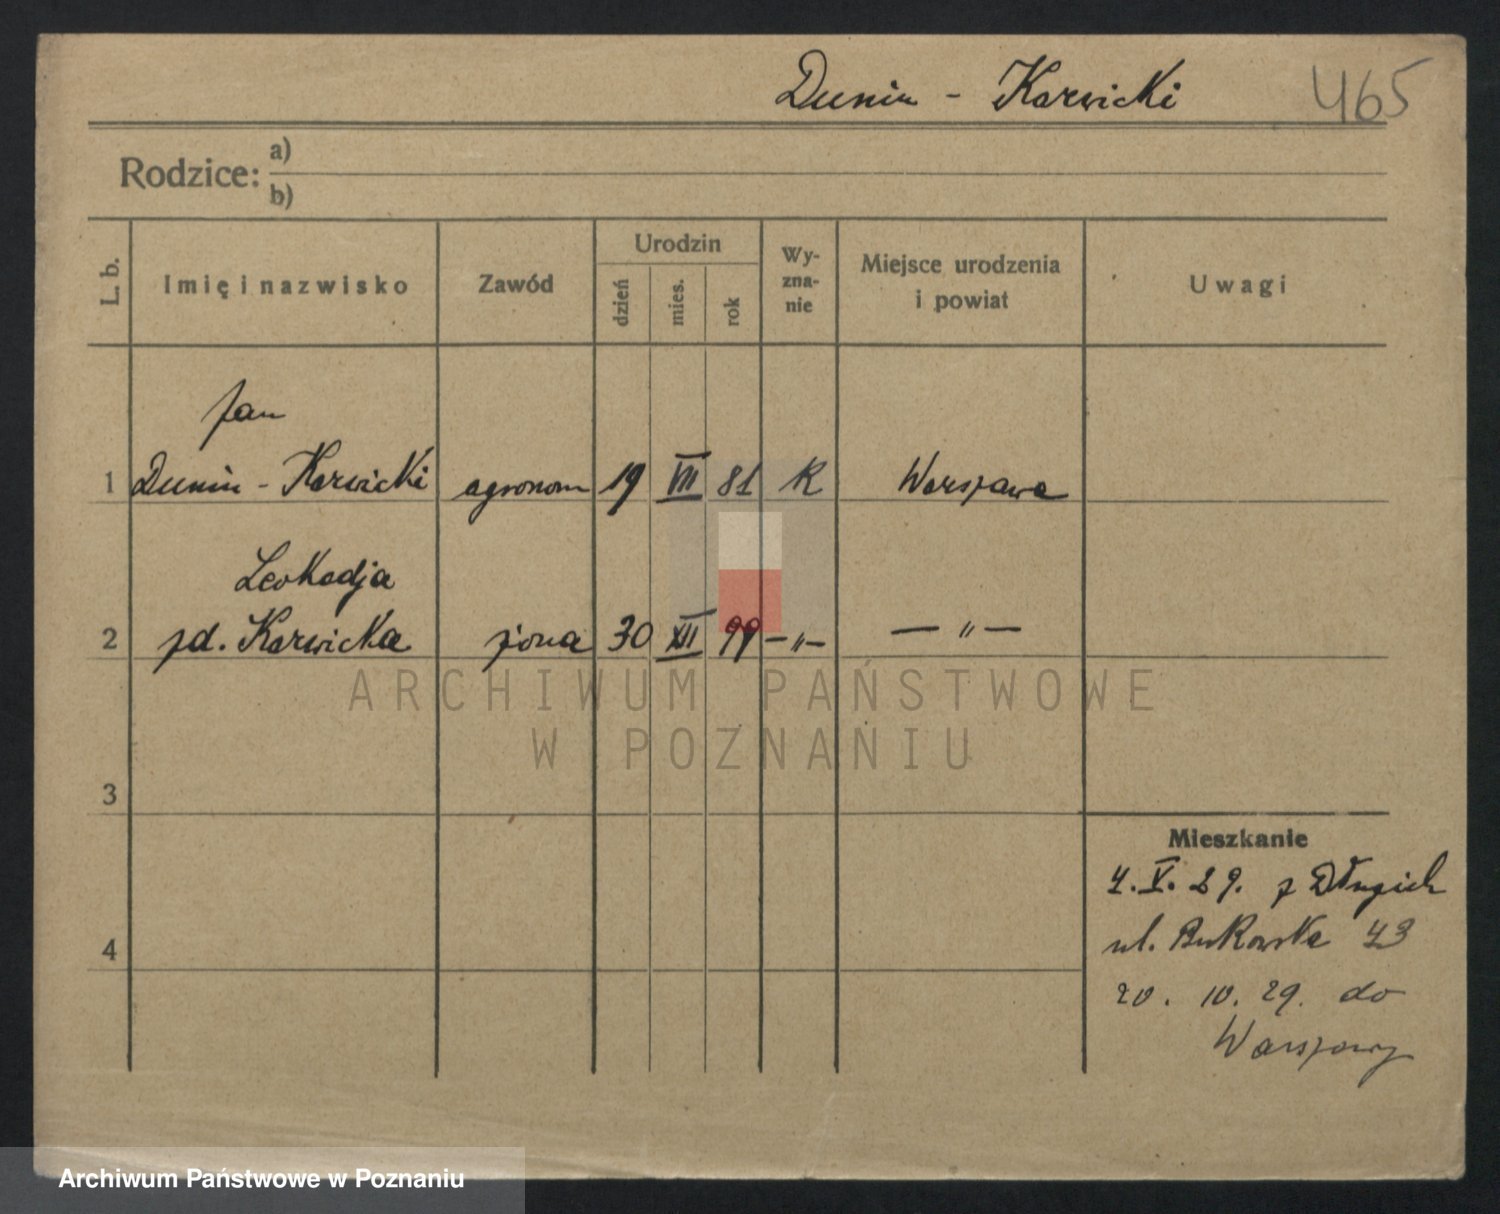 Dunin - Karwicki 465
Rodzice: a)
b)
L. b. Imię i nazwisko Zawód Urodzin dzień mies. rok Wy-zna-nie Miejsce urodzenia i powiat Uwagi
Jan
1 Dunin - Karwicki agronom 19 VII 81 K Warszawa
Leokadja
2 zd. Karwicka żona 30 XII 99 - " - - " -
ARCHIWUM PAŃSTWOWE
W POZNANIU
3
Mieszkanie
4. V. 29. z Długich
4 ul. Bukowska 43
20. 10. 29. do
Warszawy
Archiwum Państwowe w Poznaniu